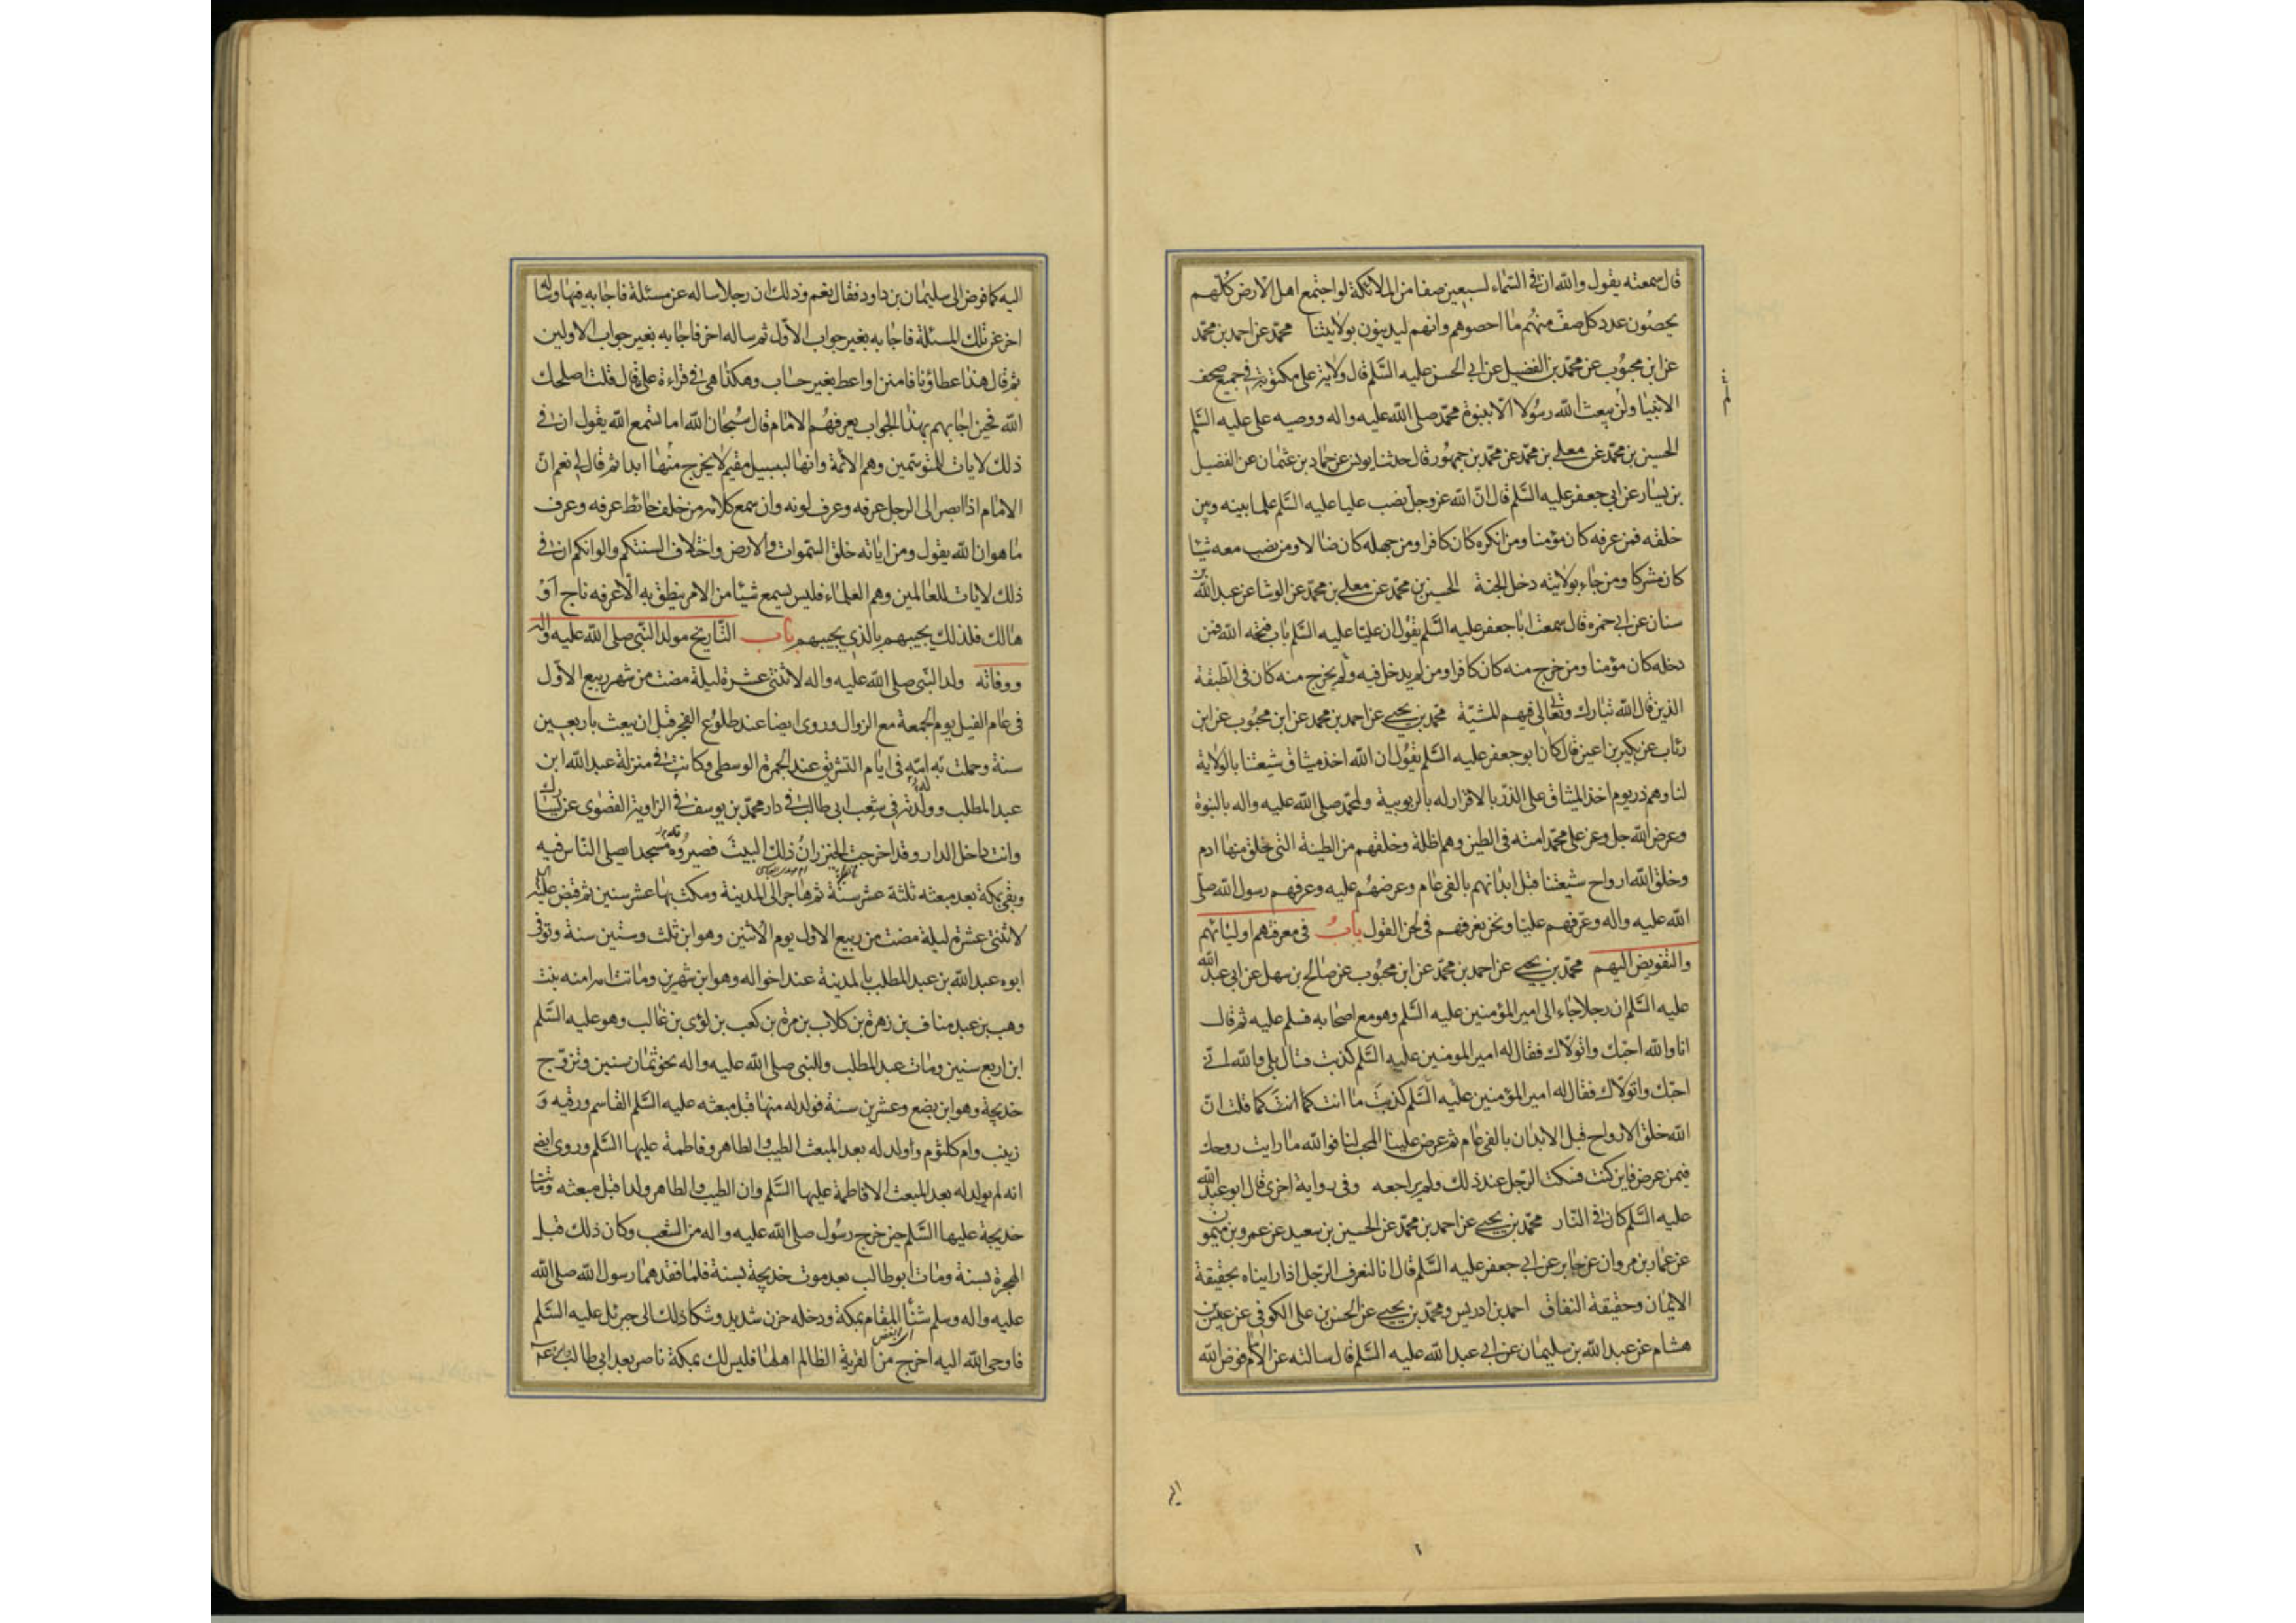 قال سمعته يقول والله ان فى السماء لسبعين صفا من الملائكة لو اجتمع اهل الارض كلهم
يحصون عدد كل صف منهم ما احصوهم وانهم ليدينون بولايتنا محمد عن احمد بن محمد
عن ابن محبوب عن محمد بن الفضيل عن ابى الحسن عليه السلم قال ولاية على مكتوبة فى جميع صحف
الانبيا ولن يبعث الله رسولا الا بنبوة محمد صلى الله عليه واله ووصيه على عليه السلم
الحسين بن محمد عن معلى بن محمد عن محمد بن جمهور قال حدثنا يونس عن حماد بن عثمان عن الفضيل
بن يسار عن ابى جعفر عليه السلم قال ان الله عز وجل نصب عليا عليه السلم علما بينه وبين
خلقه فمن عرفه كان مؤمنا ومن انكره كان كافرا ومن جهله كان ضالا ومن نصب معه شيئا
كان مشركا ومن جاء بولايته دخل الجنة الحسين بن محمد عن معلى بن محمد عن الوشا عن عبد الله بن
سنان عن ابى حمزه قال سمعت ابا جعفر عليه السلم يقول ان عليا عليه السلم باب فتحه الله فمن
دخله كان مؤمنا ومن خرج منه كان كافرا ومن لم يدخل فيه ولم يخرج منه كان فى الطبقة
الذين قال الله تبارك وتعالى فيهم المشية محمد بن يحيى عن احمد بن محمد عن ابن محبوب عن ابن
رئاب عن بكير بن اعين قال كان ابو جعفر عليه السلم يقول ان الله اخذ ميثاق شيعتنا بالولاية
لنا وهم ذر يوم اخذ الميثاق على الذر بالاقرار له بالربوبية ولمحمد صلى الله عليه واله بالنبوة
وعرض الله جل وعز على محمد امته فى الطين وهم اظلة وخلقهم من الطينة التى خلق منها ادم
وخلق الله ارواح شيعتنا قبل ابدانهم بالفى عام وعرضهم عليه وعرفهم رسول الله صلى
الله عليه واله وعرفهم عليا ونحن نعرفهم فى لحن القول باب فى معرفتهم اوليائهم
والتفويض اليهم محمد بن يحيى عن احمد بن محمد عن ابن محبوب عن صالح بن سهل عن ابى عبد الله
عليه السلم ان رجلا جاء الى امير المؤمنين عليه السلم وهو مع اصحابه فسلم عليه ثم قال
انا والله احبك واتولاك فقال له امير المومنين عليه السلم كذبت قال بلى والله انى
احبك واتولاك فقال له امير المؤمنين عليه السلم كذبت ما انت كما انت كما قلت ان
الله خلق الارواح قبل الابدان بالفى عام ثم عرض علينا المحب لنا فوالله ما رايت روحك
فيمن عرض فاين كنت فسكت الرجل عند ذلك ولم يراجعه وفى رواية اخرى قال ابو عبد الله
عليه السلم كان فى النار محمد بن يحيى عن احمد بن محمد عن الحسين بن سعيد عن عمرو بن ميمون
عن عمار بن مروان عن جابر عن ابى جعفر عليه السلم قال انا لنعرف الرجل اذا رايناه بحقيقة
الايمان وحقيقة النفاق احمد بن ادريس ومحمد بن يحيى عن الحسن بن على الكوفى عن عبيس بن
هشام عن عبد الله بن سليمان عن ابى عبد الله عليه السلم قال سالته عن الامام فوض الله
اليه كما فوض الى سليمان بن داود فقال نعم وذلك ان رجلا ساله عن مسئلة فاجابه فيها وساله
اخر عن تلك المسئلة فاجابه بغير جواب الاول ثم ساله اخر فاجابه بغير جواب الاولين
ثم قال هذا عطاؤنا فامنن او اعط بغير حساب وهكذا هى فى قراءة على قال قلت اصلحك
الله فحين اجابهم بهذا الجواب يعرفهم الامام قال سبحان الله اما تسمع الله يقول ان فى
ذلك لايات للمتوسمين وهم الائمة وانها لبسبيل مقيم لا يخرج منها ابدا ثم قال لى نعم ان
الامام اذا ابصر الى الرجل عرفه وعرف لونه وان سمع كلامه من خلف حائط عرفه وعرف
ما هو ان الله يقول ومن اياته خلق السموات والارض واختلاف السنتكم والوانكم ان فى
ذلك لايات للعالمين وهم العلماء فليس يسمع شيئا من الامر ينطق به الا عرفه ناج او
هالك فلذلك يجيبهم بالذى يجيبهم باب التاريخ مولد النبى صلى الله عليه واله
ووفاته ولد النبى صلى الله عليه واله لاثنتى عشرة ليلة مضت من شهر ربيع الاول
فى عام الفيل يوم الجمعة مع الزوال وروى ايضا عند طلوع الفجر قبل ان يبعث باربعين
سنة وحملت به امه فى ايام التشريق عند الجمرة الوسطى وكانت فى منزلة عبد الله ابن
عبد المطلب وولدته فى شعب ابى طالب فى دار محمد بن يوسف فى الزاوية القصوى عن يسارك
وانت داخل الدار وقد اخرجت الخيزران ذلك البيت فصيروه مسجدا يصلى الناس فيه
وبقى بمكة بعد مبعثه ثلثة عشر سنة ثم هاجر الى المدينة ومكث بها عشر سنين ثم قبض عليه
لاثنتى عشرة ليلة مضت من ربيع الاول يوم الاثنين وهو ابن ثلث وستين سنة وتوفى
ابوه عبد الله بن عبد المطلب بالمدينة عند اخواله وهو ابن شهرين وماتت امه امنه بنت
وهب بن عبد مناف بن زهرة بن كلاب بن مرة بن كعب بن لؤى بن غالب وهو عليه السلم
ابن اربع سنين ومات عبد المطلب وللنبى صلى الله عليه واله نحو ثمان سنين وتزوج
خديجة وهو ابن بضع وعشرين سنة فولد له منها قبل مبعثه عليه السلم القاسم ورقيه و
زينب وام كلثوم وولد له بعد المبعث الطيب والطاهر وفاطمة عليها السلم وروى ايض
انه لم يولد له بعد المبعث الا فاطمة عليها السلم وان الطيب والطاهر ولدا قبل مبعثه وماتت
خديجة عليها السلم حين خرج رسول صلى الله عليه واله من الشعب وكان ذلك قبل
الهجرة بسنة ومات ابو طالب بعد موت خديجة بسنة فلما فقدهما رسول الله صلى الله
عليه واله وسلم شنأ المقام بمكة ودخله حزن شديد وشكا ذلك الى جبرئل عليه السلم
فاوحى الله اليه اخرج من القرية الظالم اهلها فليس لك بمكة ناصر بعد ابى طالب